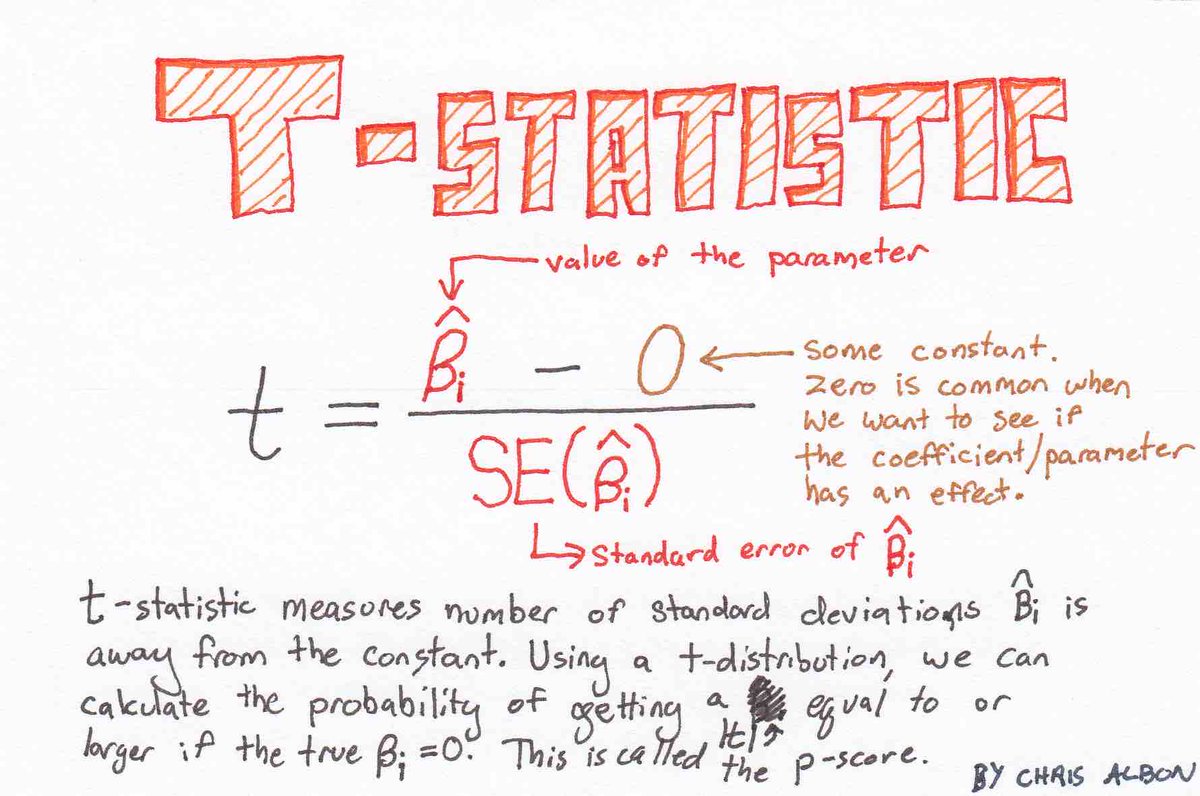 T-STATISTIC
value of the parameter
t = β̂i - 0
SE(β̂i)
Some constant.
Zero is common when
we want to see if
the coefficient/parameter
has an effect.
Standard error of β̂i
t-statistic measures number of standard deviations β̂i is
away from the constant. Using a t-distribution, we can
calculate the probability of getting a |t| equal to or
larger if the true βi = 0. This is called the p-score.
BY CHRIS ALBON